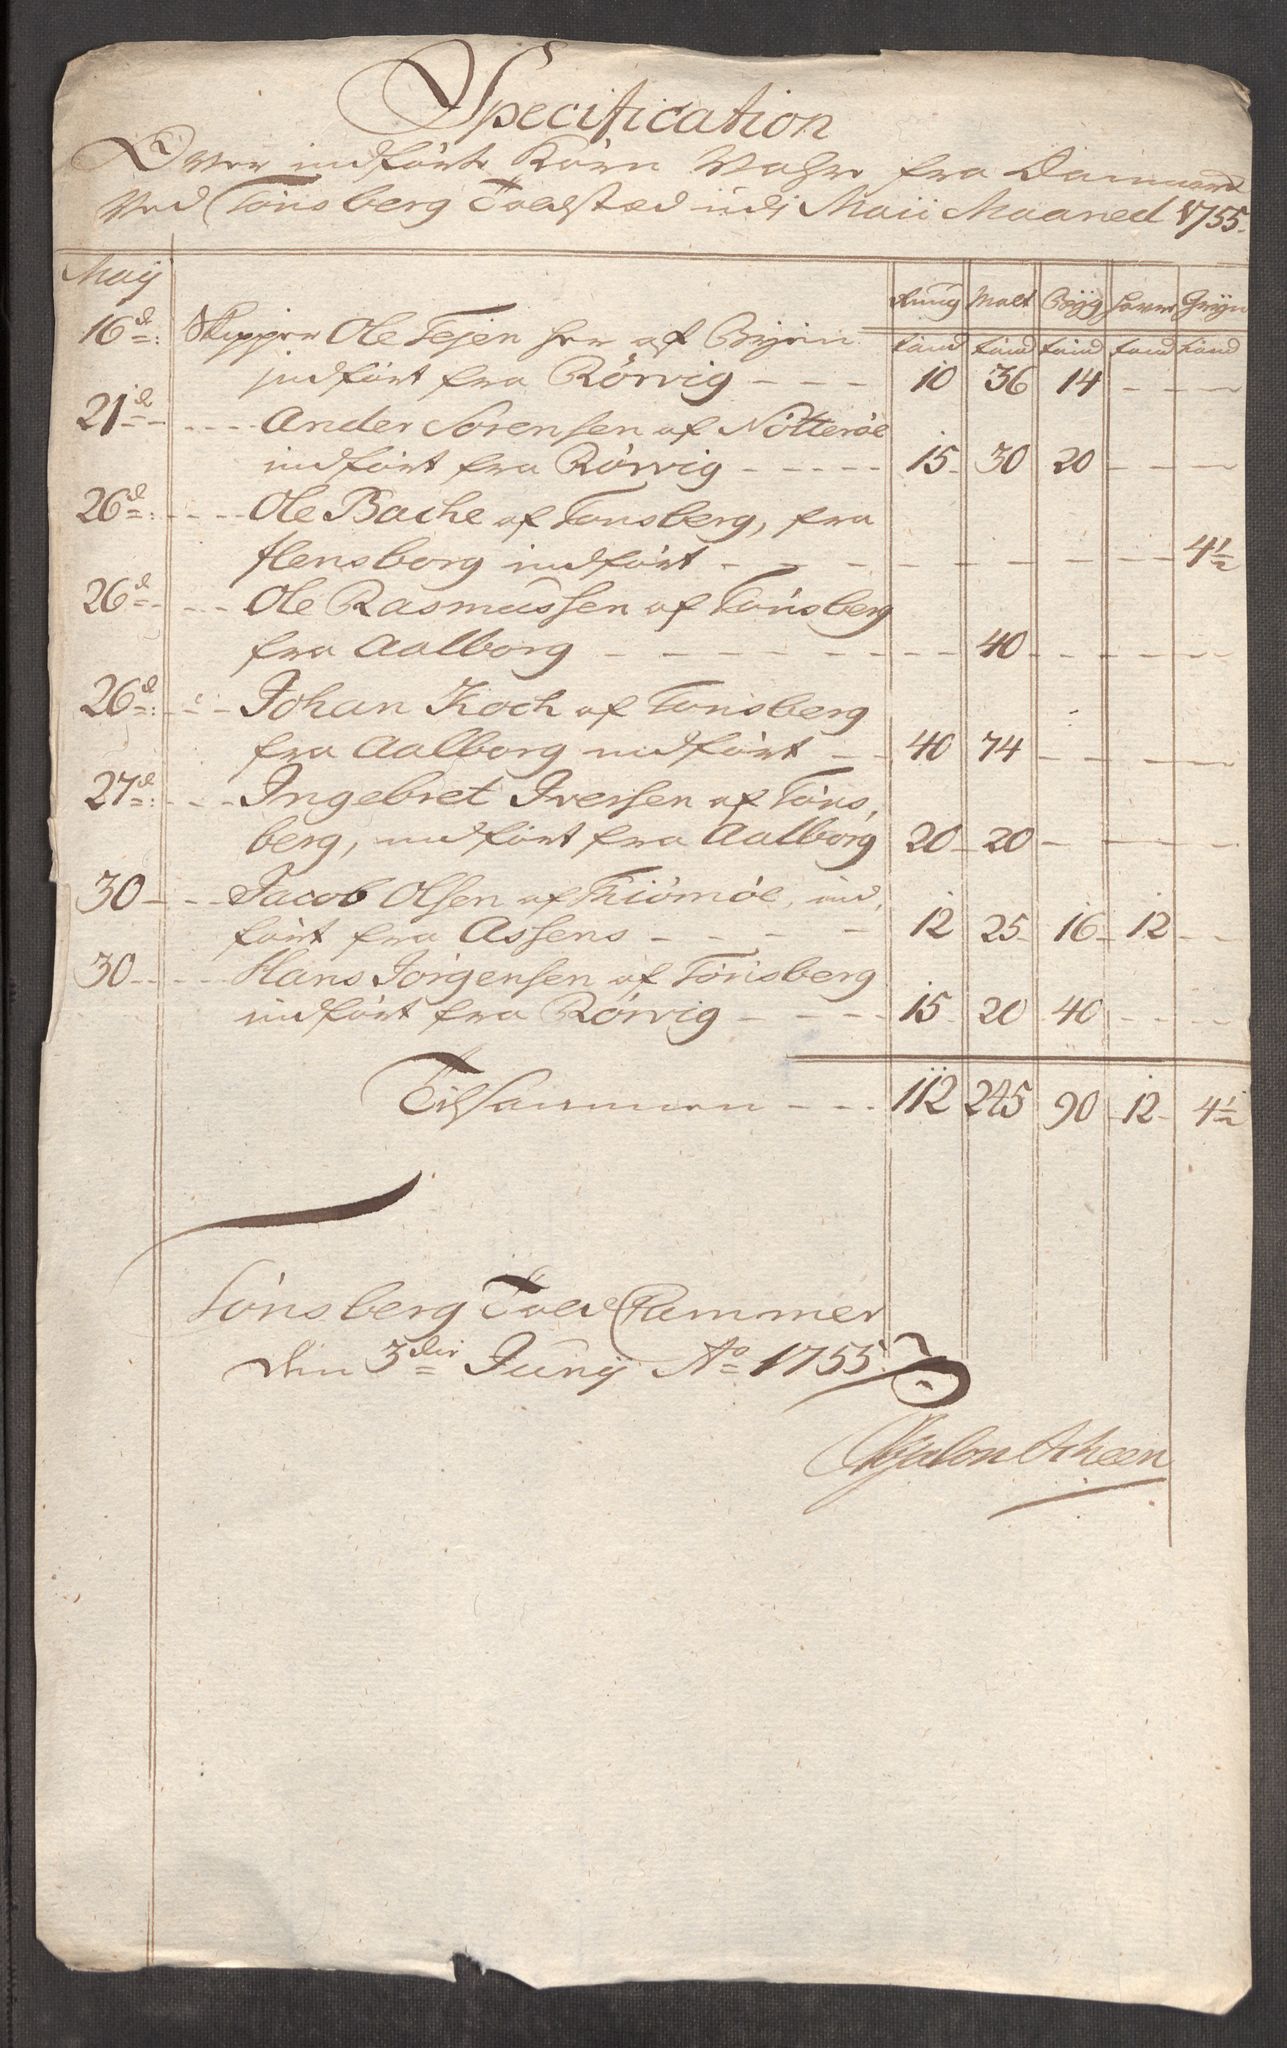 Specification
Over indførte Korn Vahre fra Danmark
Ved Tönsberg Toldstæd udi Maii Maaned 1755.
Maij
Rug Malt Byg Haver Gryn
16d: Skipper Ole Tejen her af Byen tønd tønd tønd tønd tønd
indført fra Rörvig - - - 10 36 14 - -
21d - - - - Ander Sörensen af Nötteröe
indført fra Rörvig - - - - - 15 30 20 - -
26d: - - - - Ole Bache af Tönsberg, fra
flensborg indført - - - - - - - 4½
26d - - - - Ole Rasmussen af Tönsberg
fra Aalborg - - - - - - 40 - - -
26d: - - - Johan Koch af Tönsberg
fra Aalborg indført - - 40 74 - - -
27d: - - - Ingebret Iversen af Töns,
berg, indført fra Aalborg 20 20 - - -
30 - - - Jacob Olsen af Thiömöe, ind,
ført fra Assens - - - - 12 25 16 12 -
30 - - - - Hans Jörgensen af Tönsberg
indført fra Rörvig - - - - 15 20 40 - -
Tilsammen - - - 112 245 90 12 4½
Tönsberg Told Cammer
den 3die Junij Ao 1755